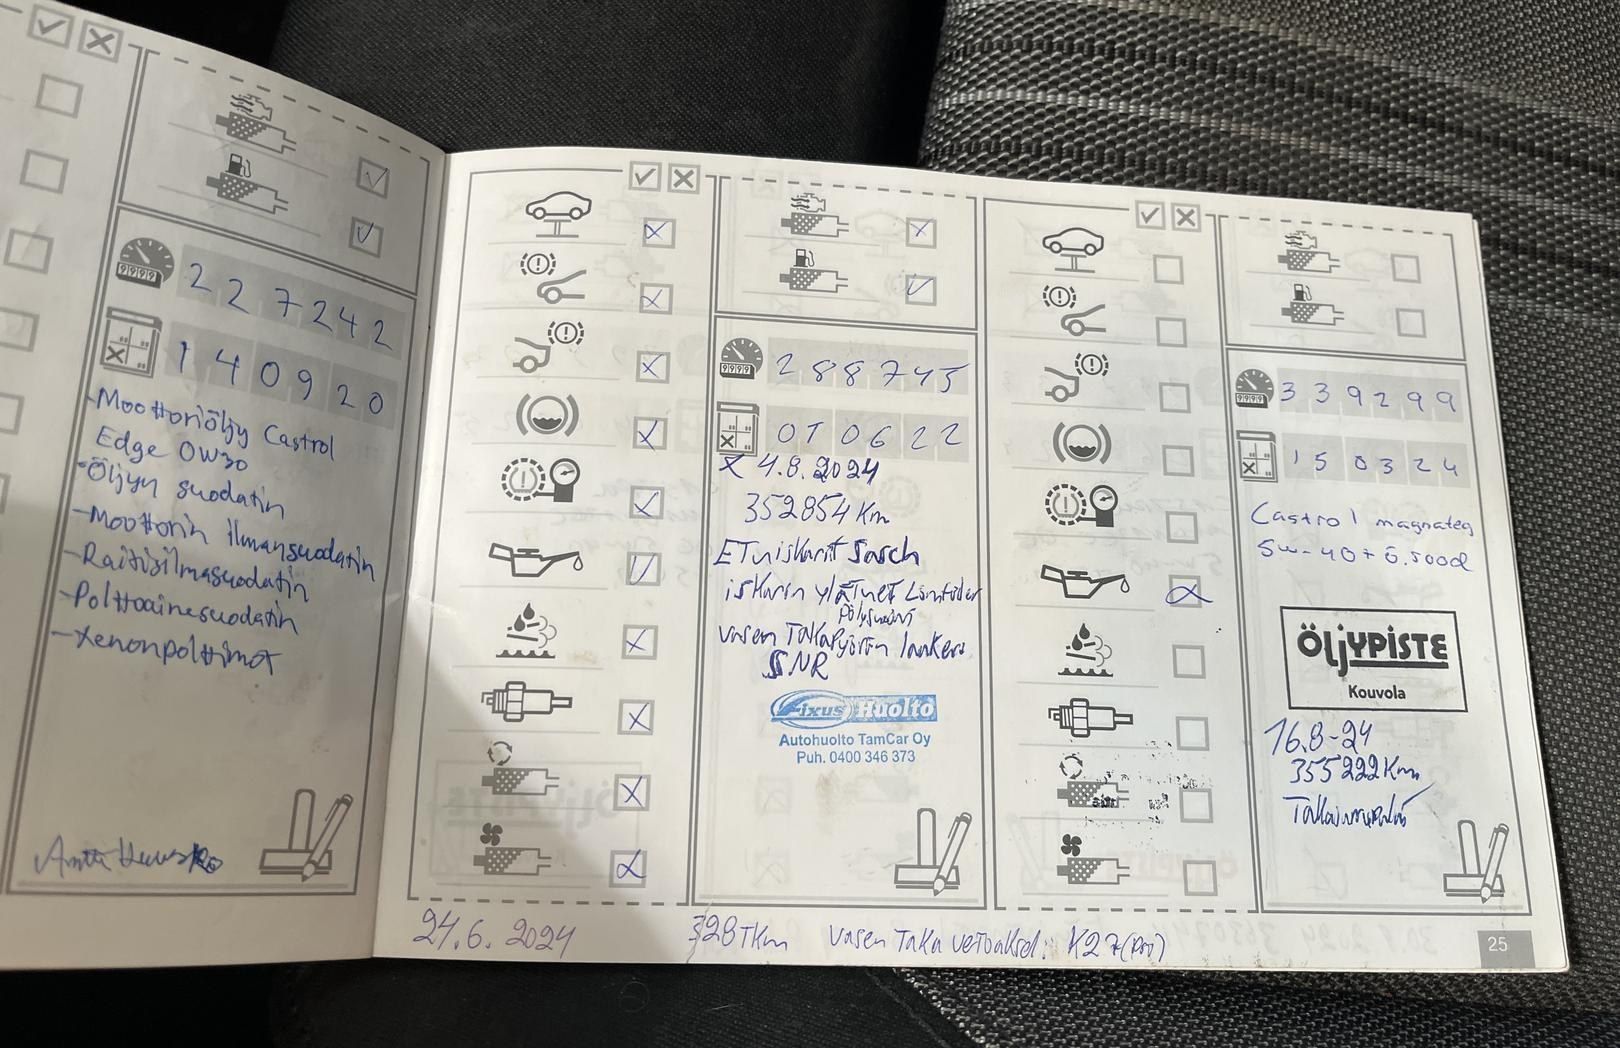 227242
140920
-Moottoriöljy Castrol
Edge 0W30
-Öljyn suodatin
-Moottorin ilmansuodatin
-Raitisilmasuodatin
-Polttoainesuodatin
-Xenonpolttimot
288745
010622
x 4.8.2024
352854 Km
ETuiskarit Sasch
iskarin ylä
vasen Takapyörän laakeri
SNR
Fixus Huolto
Autohuolto TamCar Oy
Puh. 0400 346 373
339299
150324
Castrol magnateq
5w-40
ÖljYPISTE
Kouvola
16.8-24
355222 Km
24.6. 2024 328 TKm vasen Taka vetoaksel: K27
25